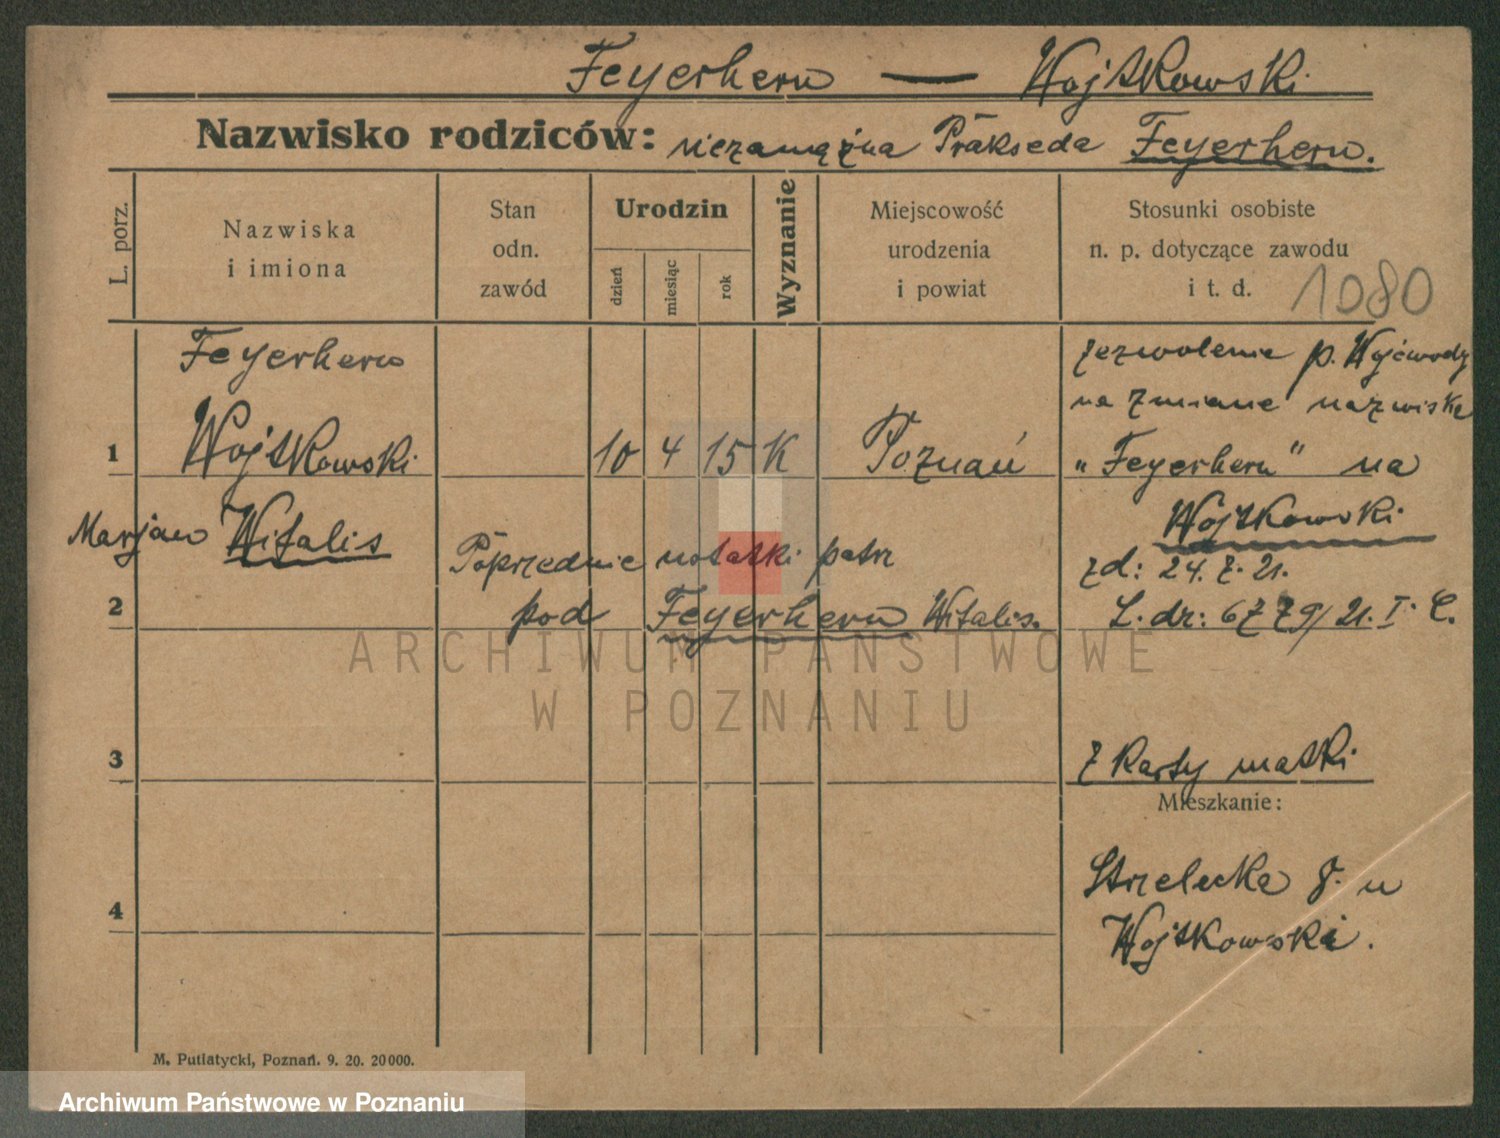 Feyerherm — Wojtkowski
Nazwisko rodziców: niezamężna Prakseda Feyerherm.
L. porz.
Nazwiska
i imiona
Stan
odn.
zawód
Urodzin
dzień
miesiąc
rok
Wyznanie
Miejscowość
urodzenia
i powiat
Stosunki osobiste
n. p. dotyczące zawodu
i t. d.
1080
Feyerherm
1 Wojtkowski 10 4 15 K Poznań
Marjan Witalis
zezwolenie p. Wojewody
na zmianę nazwiska
„Feyerherm" na
Wojtkowski
zd: 24. 7. 21.
L. dz: 6779/21. I. C.
Poprzednie notatki patrz
2 pod Feyerherm Witalis.
3
z karty matki
Mieszkanie:
Strzelecka 8. u
Wojtkowski.
4
M. Putiatycki, Poznań. 9. 20. 20000.
ARCHIWUM PAŃSTWOWE
W POZNANIU
Archiwum Państwowe w Poznaniu